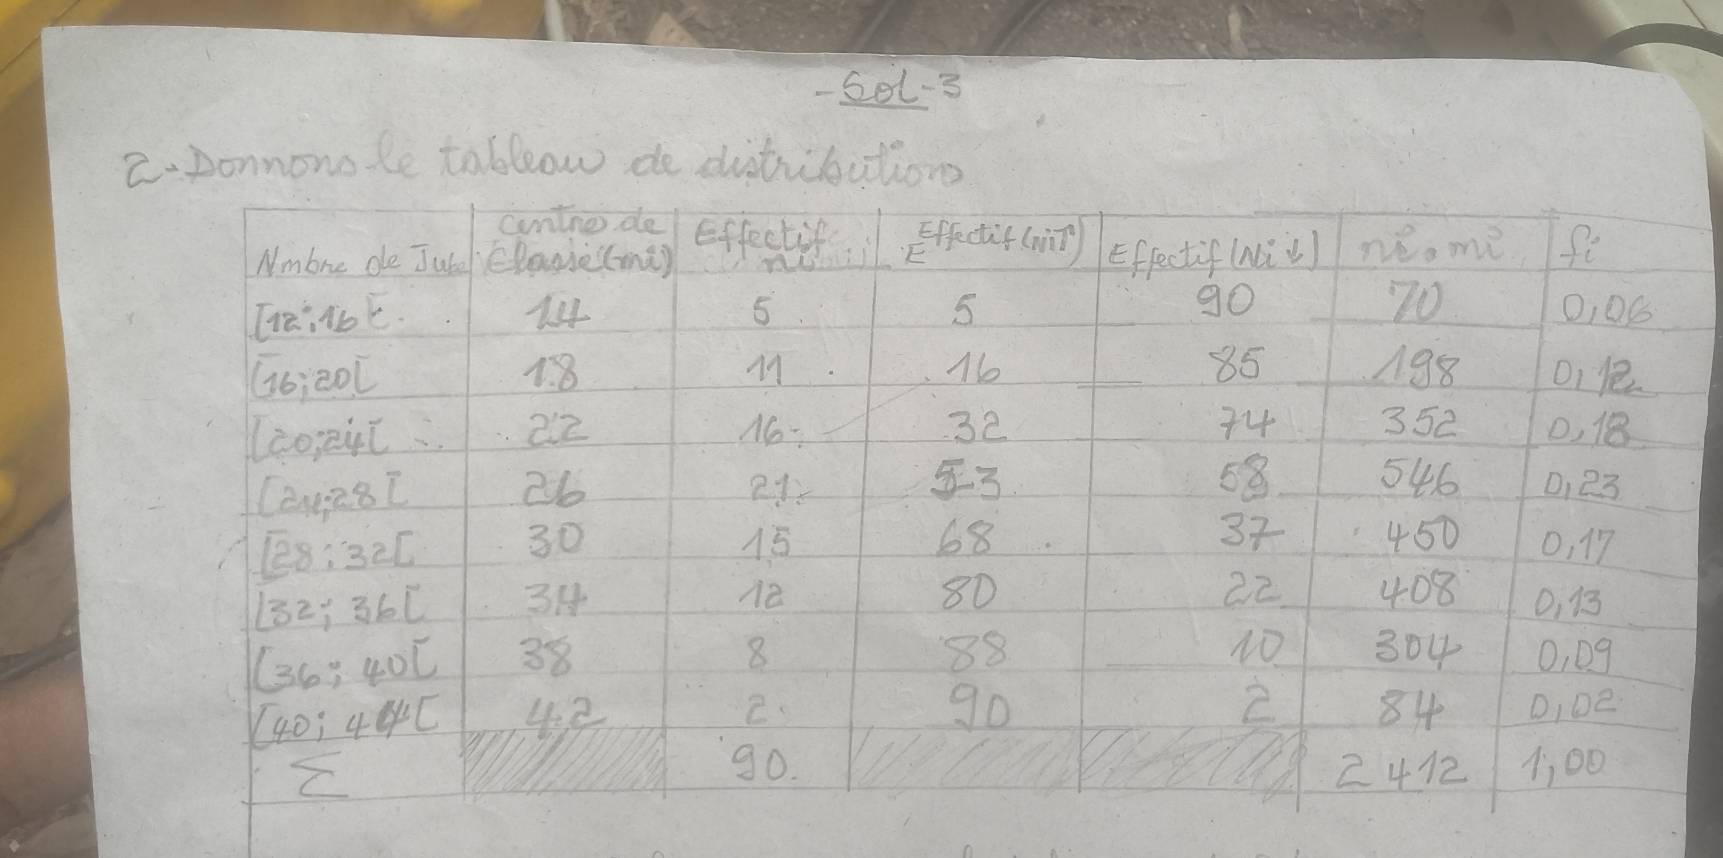 -Sol-3
2-Donnons le tableau de distribution
Nmbre de Jube | Centre de Classe (mi) | Effectif ni | Effectif (Ni↑) | Effectif (Ni↓) | ni.mi | fi
[12;16[ | 14 | 5 | 5 | 90 | 70 | 0,06
[16;20[ | 18 | 11 | 16 | 85 | 198 | 0,12
[20;24[ | 22 | 16 | 32 | 74 | 352 | 0,18
[24;28[ | 26 | 21 | 53 | 58 | 546 | 0,23
[28;32[ | 30 | 15 | 68 | 37 | 450 | 0,17
[32;36[ | 34 | 12 | 80 | 22 | 408 | 0,13
[36;40[ | 38 | 8 | 88 | 10 | 304 | 0,09
[40;44[ | 42 | 2 | 90 | 2 | 84 | 0,02
Σ | 90 | 2412 | 1,00